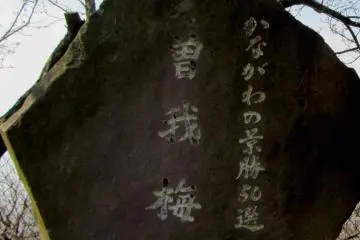 かながわの景勝50選
曽我梅